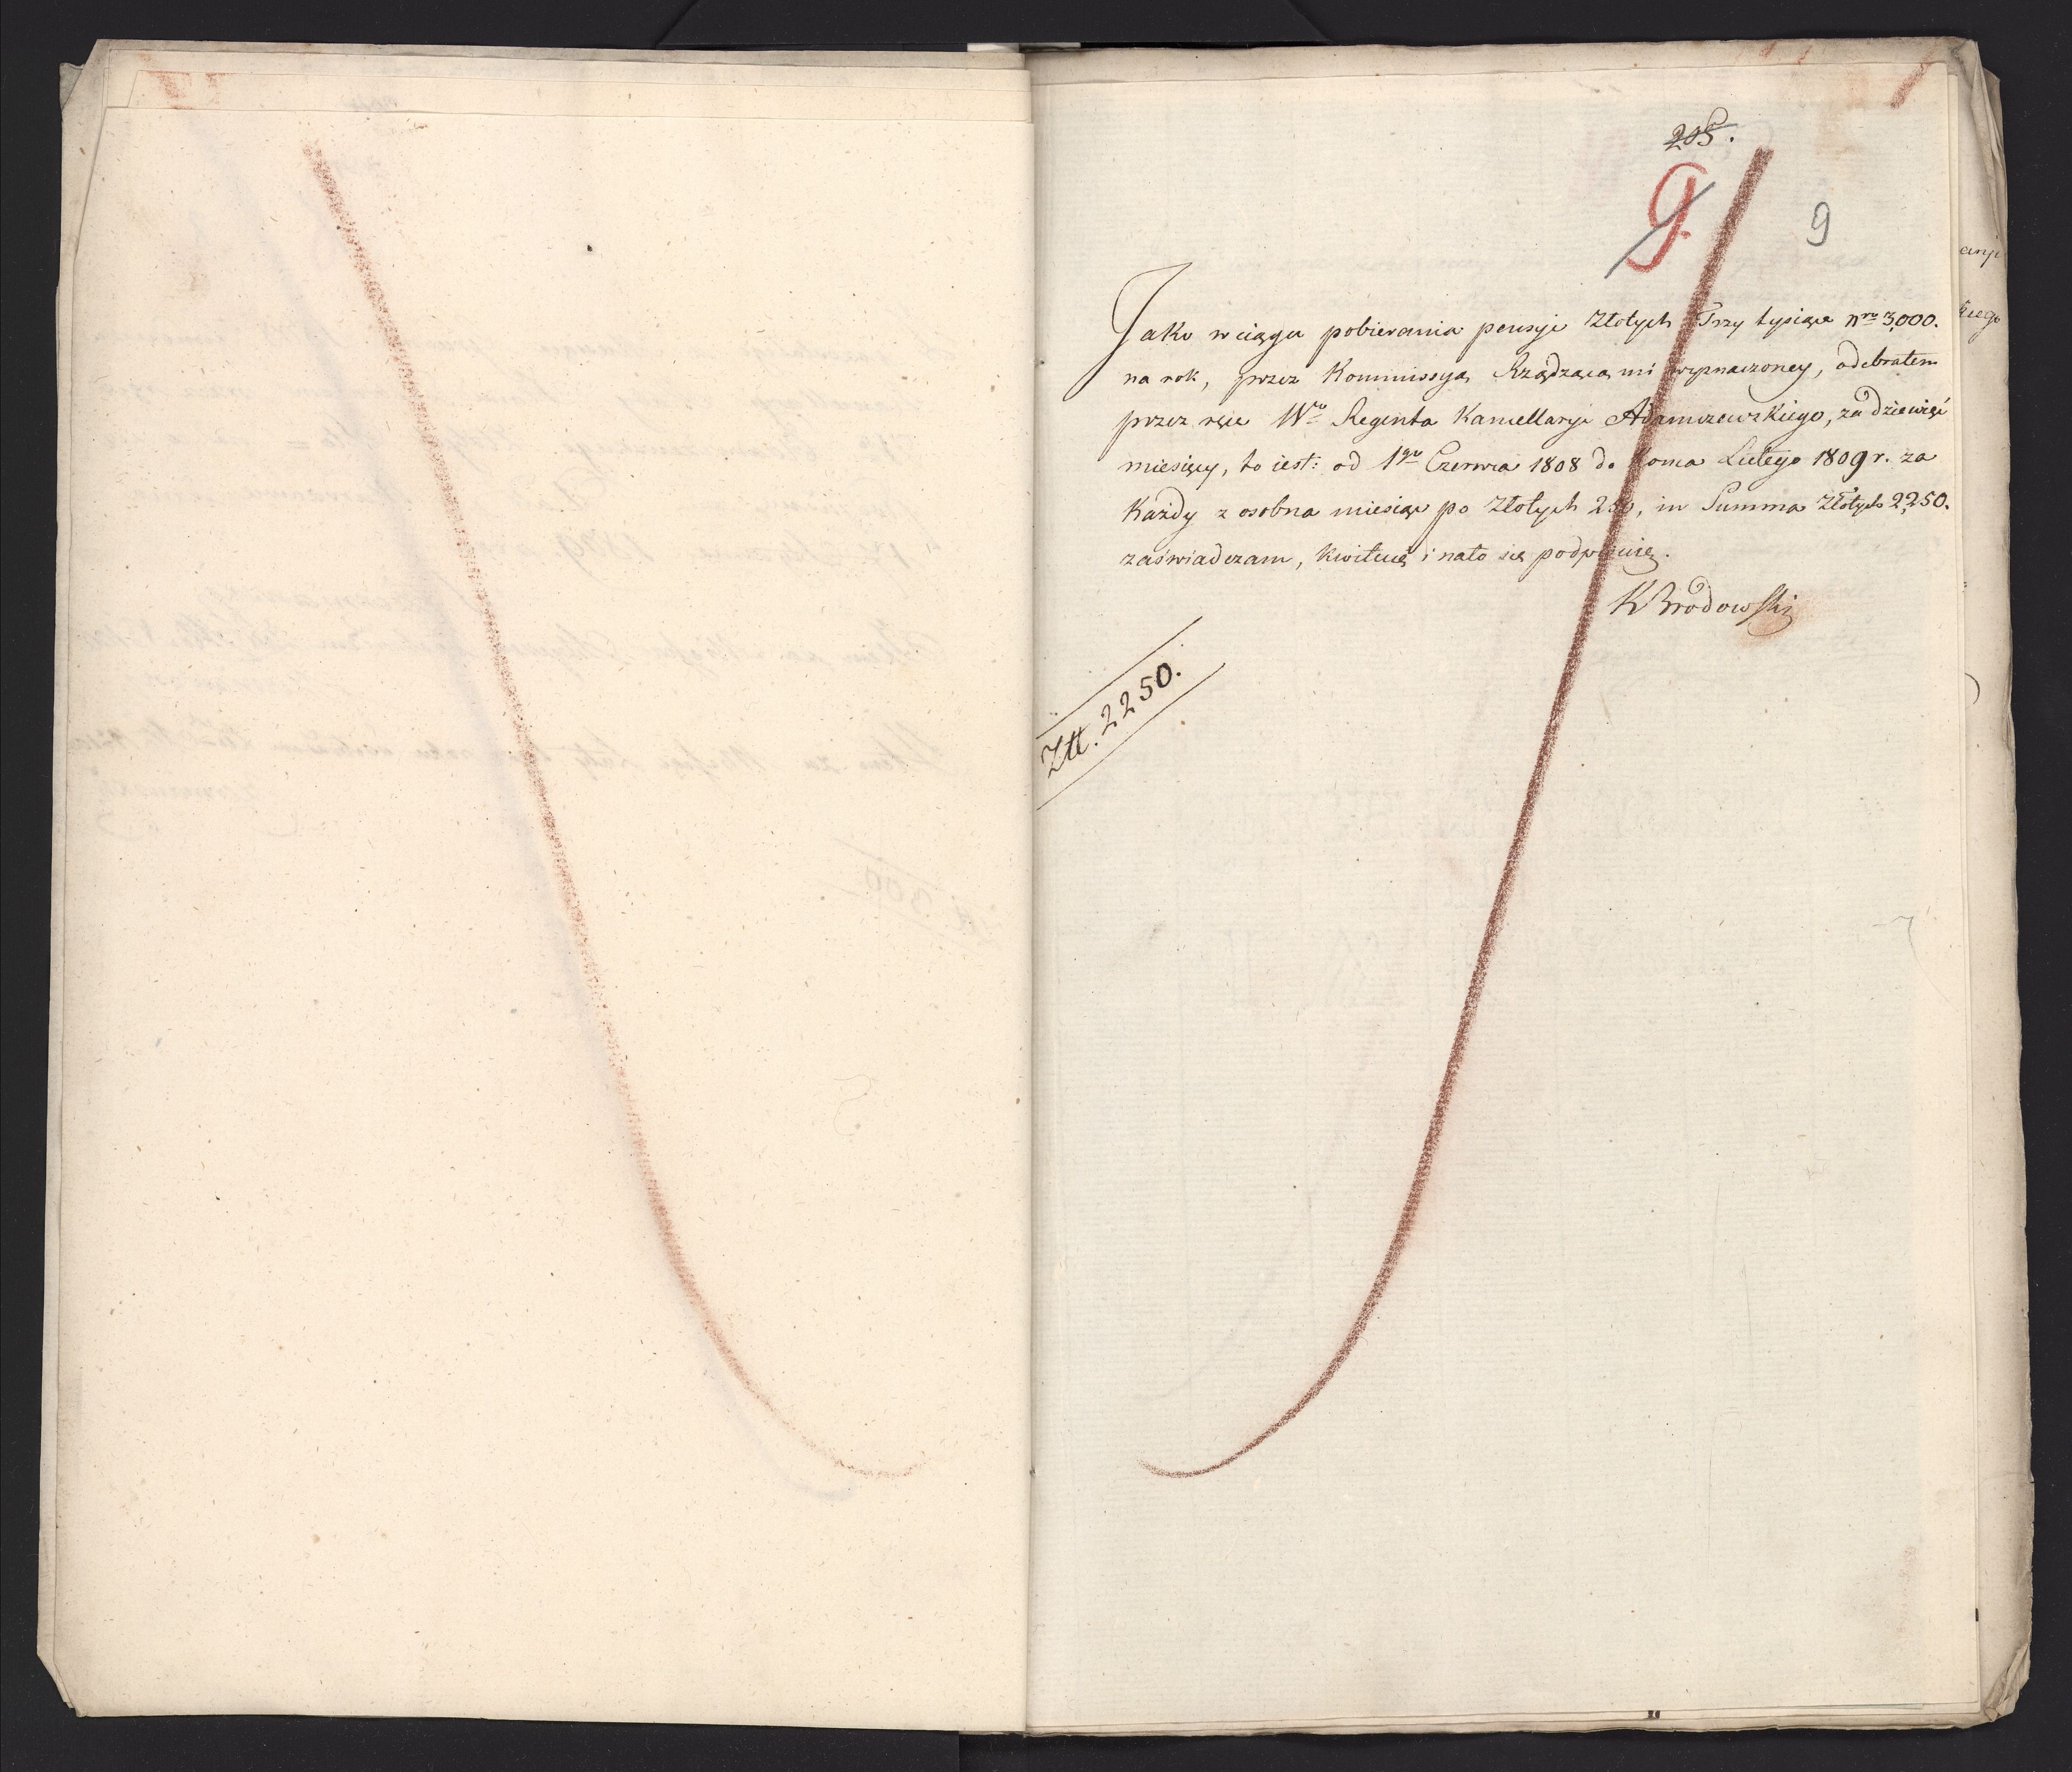 205.
9.
9
Jako w ciągu pobierania pensyi Złotych Trzy tysiące nro 3,000.
na rok, przez Kommissyą Rządzącą mi wyznaczoney, odebrałem
przez ręce Wgo Regenta Kancellaryi Adamczewskiego, za dziewięć
miesięcy, to iest: od 1go Czerwca 1808 do końca Lutego 1809 r. za
Każdy z osobna miesiąc po Złotych 250, in Summa Złotych 2,250.
zaświadczam, kwituię i na to się podpisuię.
K Brodowski
Złł. 2250.